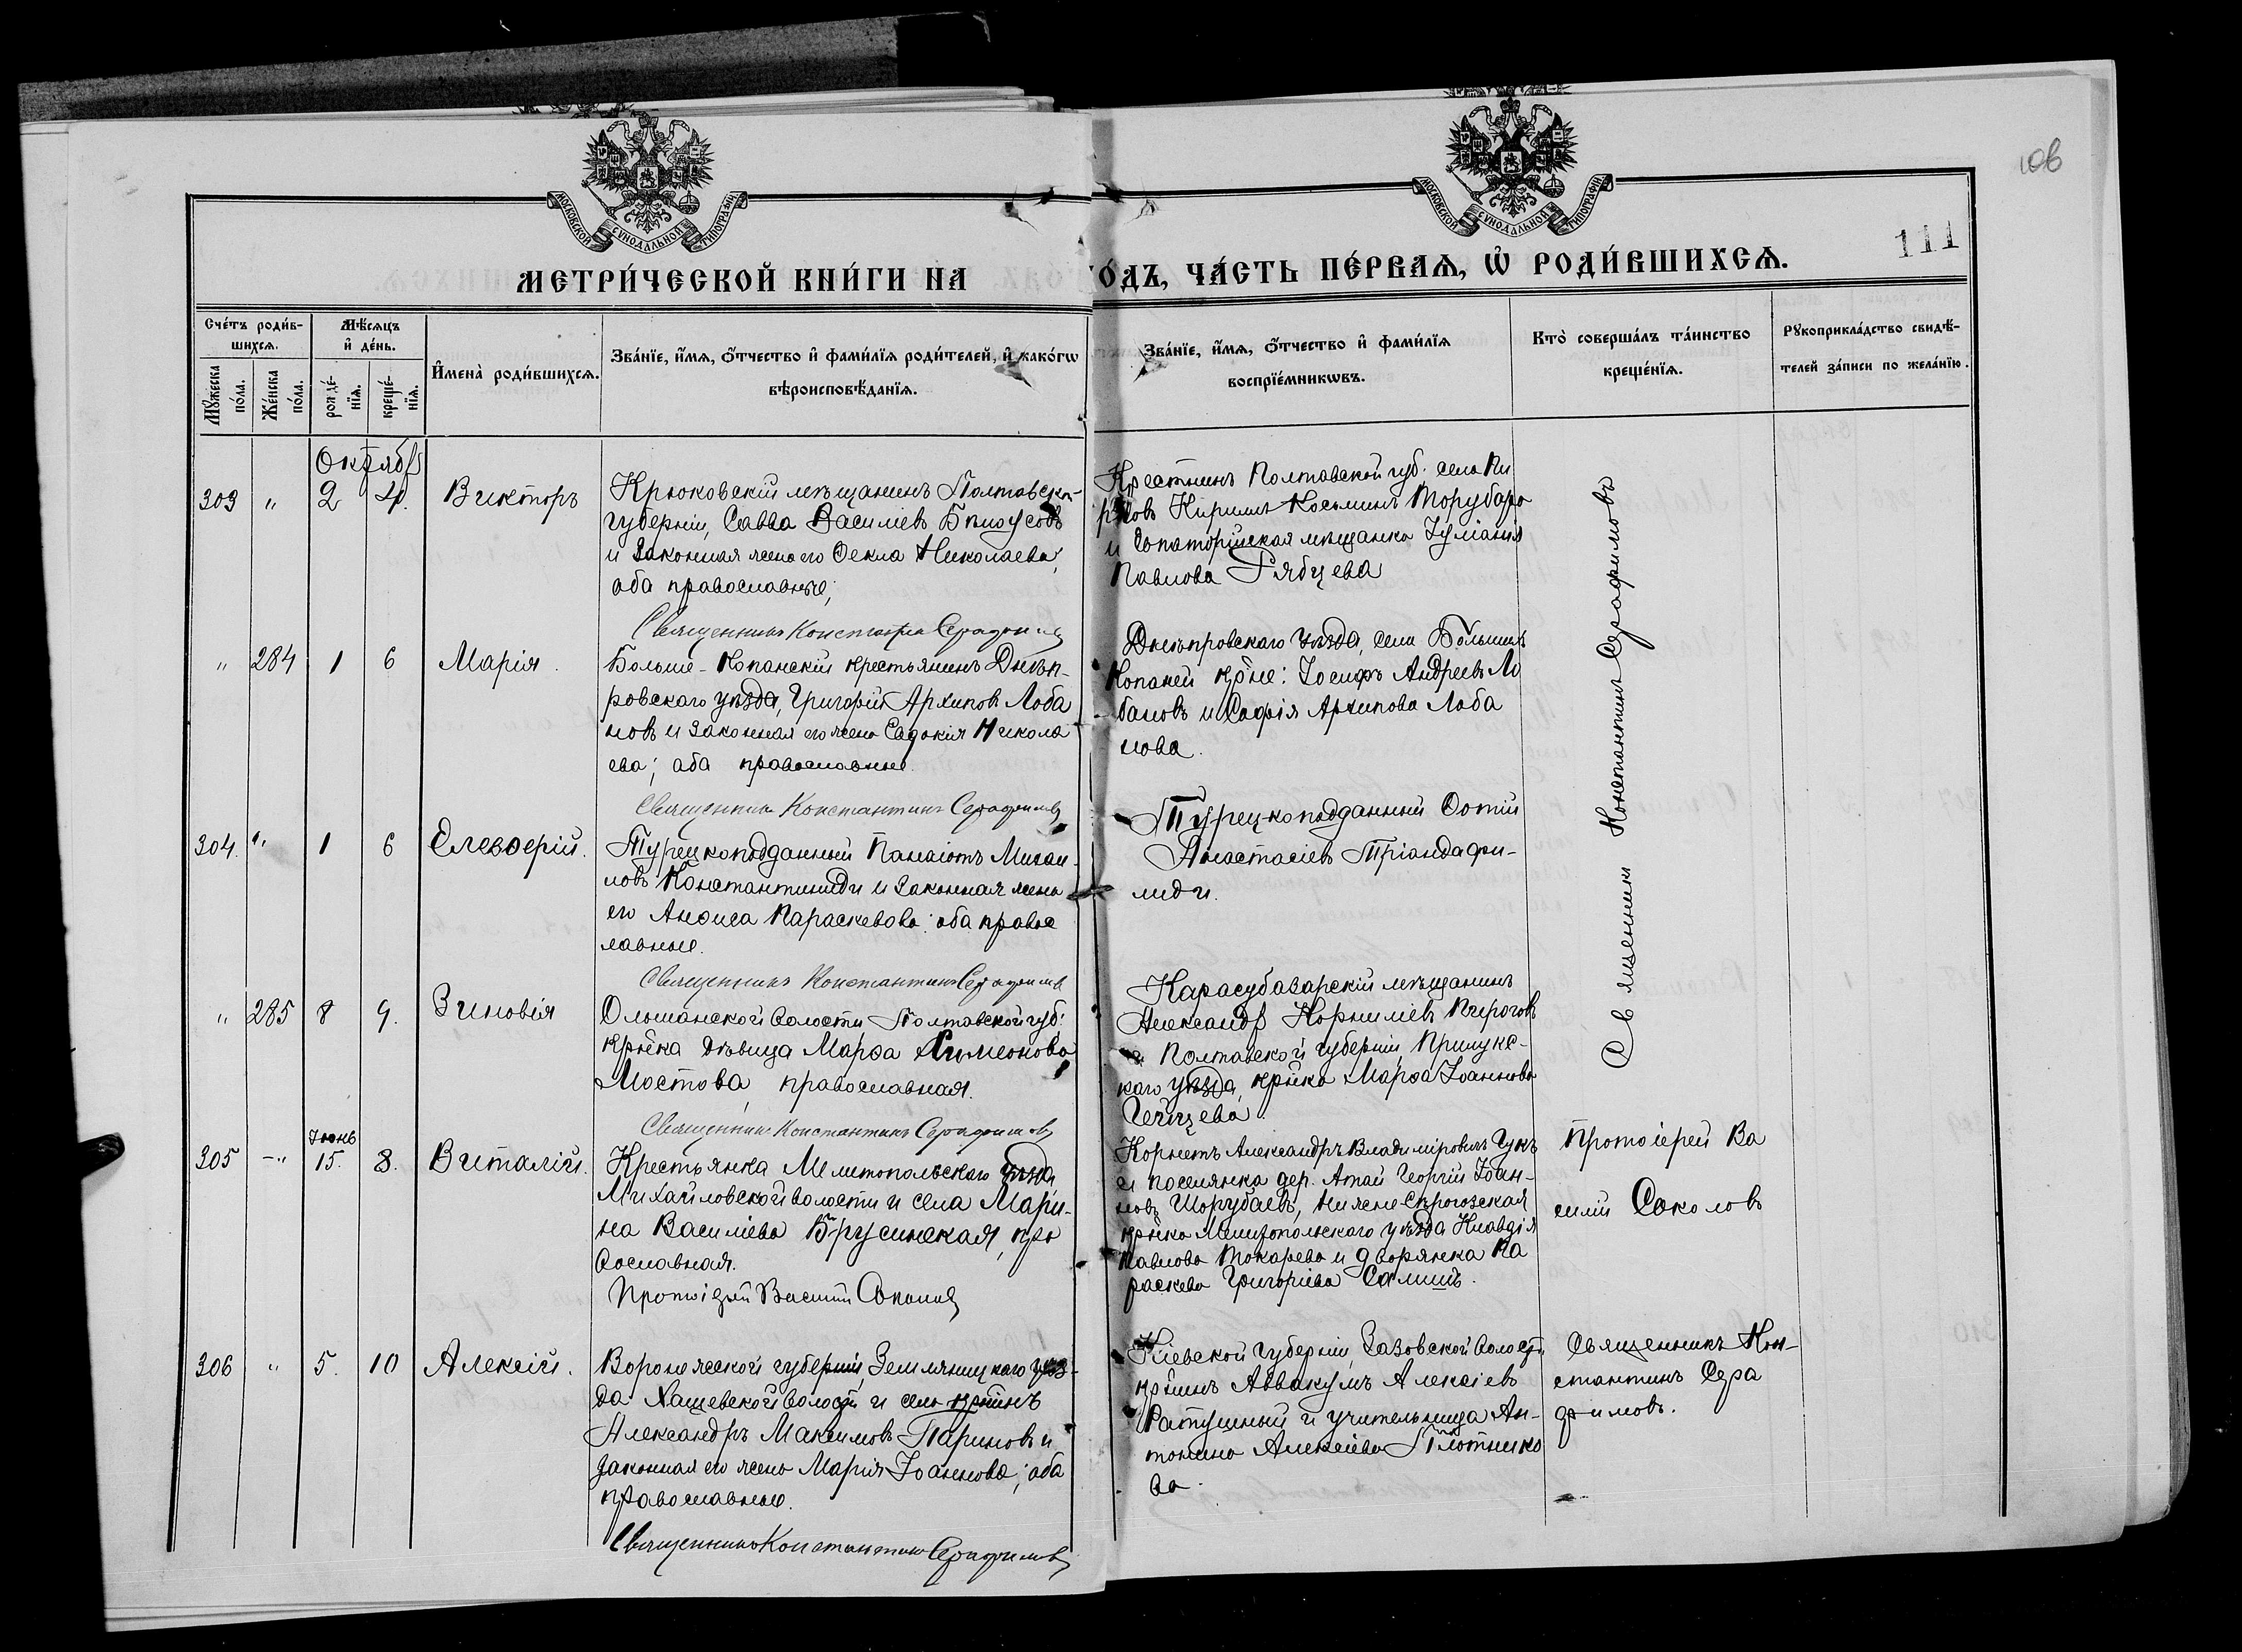 МОСКОВСКОЙ СѴНОДАЛЬНОЙ ТИПОГРАФІИ
МОСКОВСКОЙ СѴНОДАЛЬНОЙ ТИПОГРАФІИ
106
111
МЕТРИ́ЧЕСКОЙ КНИ́ГИ НА
ГО́ДЪ, ЧА́СТЬ ПЕ́РВАѦ, Ѡ҆ РОДИ́ВШИХСѦ.
Сче́тъ роди́в-
шихсѧ.
Мѣ́сѧцъ
и҆ де́нь.
Мꙋ́жеска по́ла.
Же́нска по́ла.
рожде́-
нїѧ.
креще́-
нїѧ.
И҆мена̀ роди́вшихсѧ.
Зва́нїе, и҆́мѧ, ѻ҆́тчество и҆ фами́лїѧ роди́телей, и҆ како́гѡ
вѣроисповѣ́данїѧ.
Зва́нїе, и҆́мѧ, ѻ҆́тчество и҆ фами́лїѧ
воспрїе́мникѡвъ.
Кто̀ соверша́лъ та́инство
креще́нїѧ.
Рꙋкоприкла́дство свидѣ́-
телей за́писи по жела́нїю.
Октябр
303 " 2 4. Викторъ
Крюковскій мѣщанинъ Полтавской
губерніи, Савва Василіевъ Бѣлоусовъ
и законная жена его Ѳекла Николаева;
оба православные;
Священникъ Константинъ Серафимовъ
Полтавской губ. села Пи
Кириллъ Косьминъ Торубаро
и Евпаторійская мѣщанка Іуліанія
Павлова Рябцева
" 284 1 6 Марія.
Больше-Копанскій крестьянинъ Днѣп-
ровскаго уѣзда, Григорій Архиповъ Лоба
новъ и законная его жена Евдокія Никола
ева; оба православные.
Священникъ Константинъ Серафимовъ
Днѣпровскаго уѣзда, села Большихъ
Копаней кр-не: Іосифъ Андреевъ Ло
бановъ и Софія Архипова Лоба
нова.
304. " 1 6 Елевѳерій.
Турецкоподданный Панаіотъ Михаи-
ловъ Константиниди и законная жена
его Анѳиса Параскевова; оба правос
лавные.
Священникъ Константинъ Серафимовъ
Турецкоподданный Фотій
Анастасіевъ Тріандафи-
лиди.
" 285 8 9. Зиновія
Ольшанской волости Полтавской губ:
кр-нка дѣвица Марѳа Симеонова
Мостова, православная.
Священникъ Константинъ Серафимовъ
Карасубазарскій мѣщанинъ
Александръ Корниліевъ Пироговъ
и Полтавской губерніи, Прилукс-
каго уѣзда, кр-нка Марѳа Іоаннова
Священникъ Константинъ Серафимовъ
Іюнь
305 -" 15. 8. Виталій.
Крестьянка Мелитопольскаго уѣзда
Михайловской волости и села Мари-
на Василіева Брусинская, пра
вославная.
Протоіерей Василій Соколовъ
Корнетъ Александръ Владиміровичъ
и поселянка дер. Атай Георгій Іоан-
новъ Шорубаевъ, Нижне Сѣрогозская
кр-нка Мелитопольскаго уѣзда Клавдія
Павлова Токарева и дворянка Па
раскева Григоріева
Протоіерей Ва
силій Соколовъ
306 " 5. 10 Алексій.
Воронежской губерніи, Землянскаго уѣз-
да волости и села кр-нинъ
Александръ Максимовъ Париновъ и
законная его жена Марія Іоаннова; оба
православные.
Священникъ Константинъ Серафимовъ
Кіевской губерніи, волости
кр-нинъ Аввакумъ Алексіевъ
Ратушный и учительница Ан-
тонина Алексіева Плотнико
ва.
Священникъ Кон-
стантинъ Сера
фимовъ.